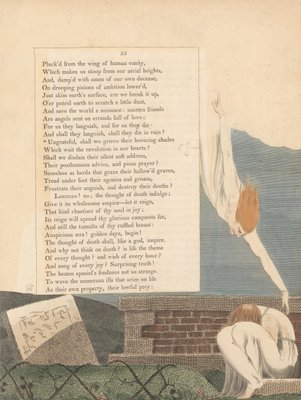 33
Pluck'd from the wing of human vanity,
Which makes us stoop from our aerial heights,
And, damp'd with omen of our own decease,
On drooping pinions of ambition lower'd,
Just skim earth's surface, ere we break it up,
O'er putrid earth to scratch a little dust,
And save the world a nuisance: smitten friends
Are angels sent on errands full of love:
For us they languish, and for us they die:
And shall they languish, shall they die in vain?
* Ungrateful, shall we grieve their hovering shades
Which wait the revolution in our hearts?
Shall we disdain their silent soft address,
Their posthumous advice, and pious prayer?
Senseless as herds that graze their hallow'd graves,
Tread under foot their agonies and groans,
Frustrate their anguish, and destroy their deaths?
Lorenzo! no; the thought of death indulge;
Give it its wholesome empire—let it reign,
That kind chastiser of thy soul in joy:
Its reign will spread thy glorious conquests far,
And still the tumults of thy ruffled breast:
Auspicious æra! golden days, begin!
The thought of death shall, like a god, inspire.
And why not think on death? is life the theme
Of every thought? and wish of every hour?
And song of every joy? Surprising truth!
The beaten spaniel's fondness not so strange.
To wave the numerous ills that seize on life
As their own property, their lawful prey;